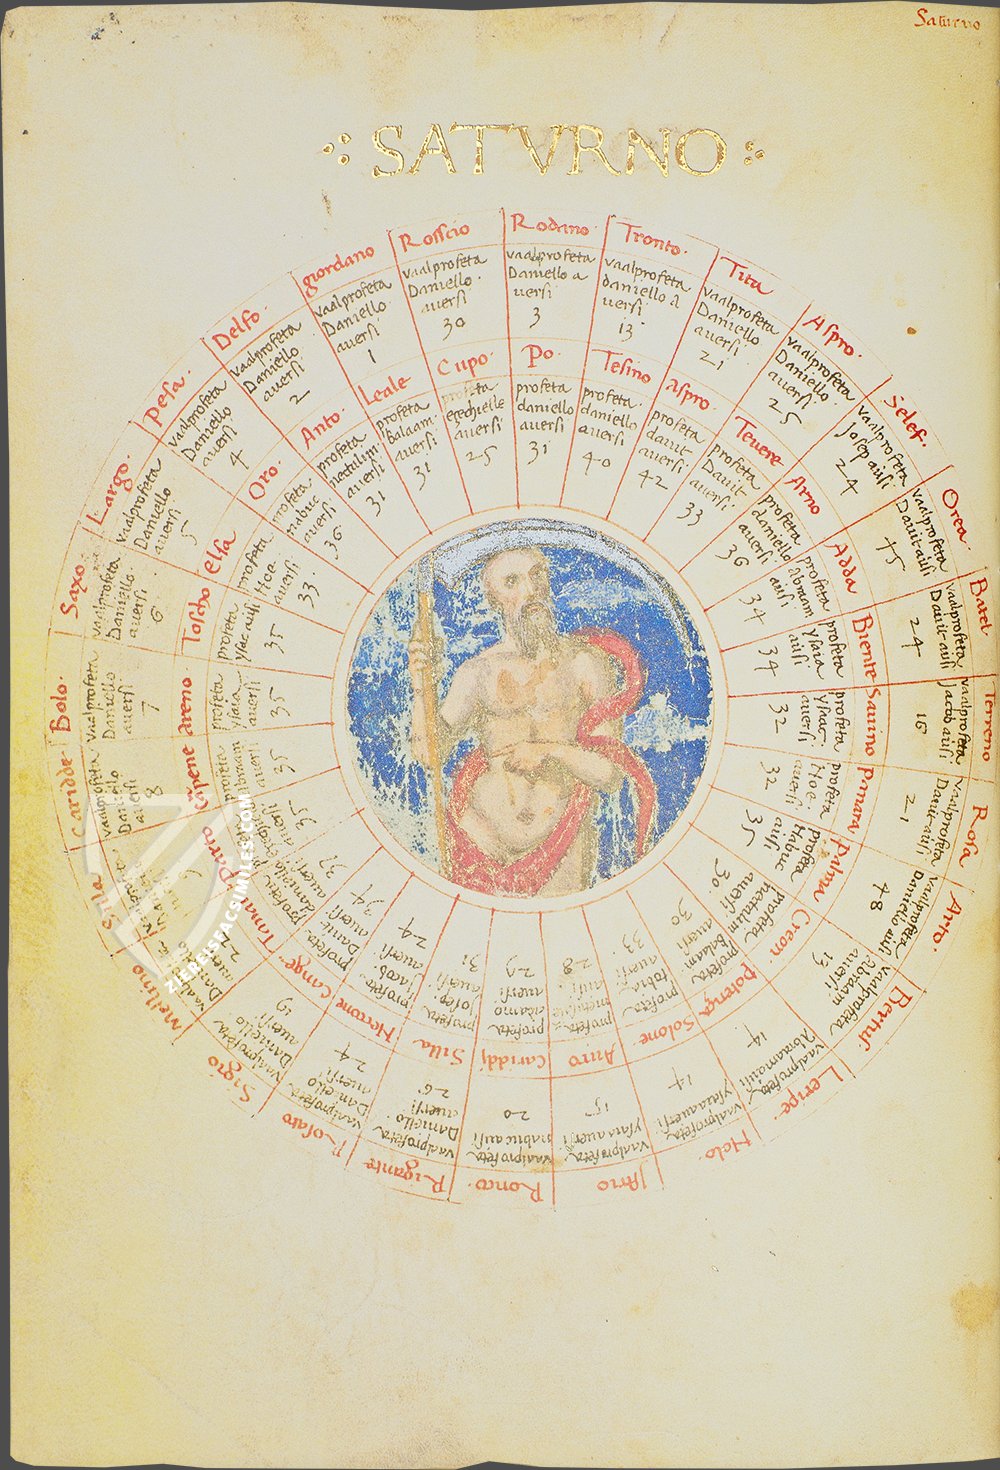 Saturno
SATVRNO
Rodano.
vaalprofeta
Daniello a
uersi
3
Tronto.
vaalprofeta
daniello a
uersi
13
Tita
vaalprofeta
Daniello
auersi
21
Aspro.
vaalprofeta
Daniello.
auersi
25
Selef.
vaalprofeta
Josep auersi
24
Orea.
vaalprofeta
Dauit auersi
Batel
vaalprofeta
Dauit ausi
24
Terreno
vaalprofeta
Jacob ausi
16
Rosa
vaalprofeta
Dauit ausi
21
Arto.
vaalprofeta
Daniello ausi
48
Bertus
vaalprofeta
Abraam
auersi
13
Leripe.
vaalprofeta
Abraam ausi
14
Nelo.
vaalprofeta
ysaia auersi
14
vaalprofeta
ysaia auersi
15
Ronco.
vaalprofeta
nabuc ausi
20
Rigante
vaalprofeta
Daniello.
auersi
26
Rosaro
vaalprofeta
Daniello
auersi
24
Sigio
vaalprofeta
Daniello
auersi
19
Mellino
vaalprofeta
Daniello
auersi
22
Silla
Caridde
vaalprofeta
Daniello
8
Bolo.
vaalprofeta
Daniello
auersi
7
Saxo.
vaalprofeta
Daniello.
auersi
6
Largo.
vaalprofeta
Daniello
auersi
5
Pesa.
vaalprofeta
Daniello
auersi
4
Delfo.
vaalprofeta
Daniello
auersi
2
giordano
vaalprofeta
Daniello
auersi
1
Rosscio
vaalprofeta
Daniello.
auersi
30
Po.
profeta
daniello
auersi
31
Tesino
profeta
daniello
auersi
40
Aspro.
profeta
dauit
auersi
42
Teuere
profeta
Dauit
auersi
33
Arno
profeta
daniello
auersi
36
Adda
profeta
Abraam
ausi
34
Biente
profeta
ysaia
ausi
34
Sauino
profeta
ysac.
auersi
32
profeta
Noe.
auersi
32
Palma
profeta
Nabuc
ausi
35
Creon
profeta
nectalim
auersi
30
Potenza
profeta
balaam
auersi
30
Solone
profeta
tobia
auersi
33
Auro
profeta
ausi
28
Cariddi
profeta
auersi
29
Silla
profeta
Josep.
auersi
31
Nerrone
profeta
Jacob
auersi
24
Gange
profeta
Dauit
auersi
34
Tanai
profeta
daniello
auersi
32
Parto
profeta
auersi
35
profeta
Abraam
auersi
35
Areno
profeta
ysaia
auersi
35
Toscho
profeta
ysac ausi
35
elsa
profeta
Noe.
auersi
33
Oro.
profeta
nabuc
auersi
36
Anto.
profeta
nectalim
auersi
31
Leale
profeta
Balaam
auersi
31
Cupo.
profeta
ezechielle
auersi
25
ZIEREISFACSIMILES.COM